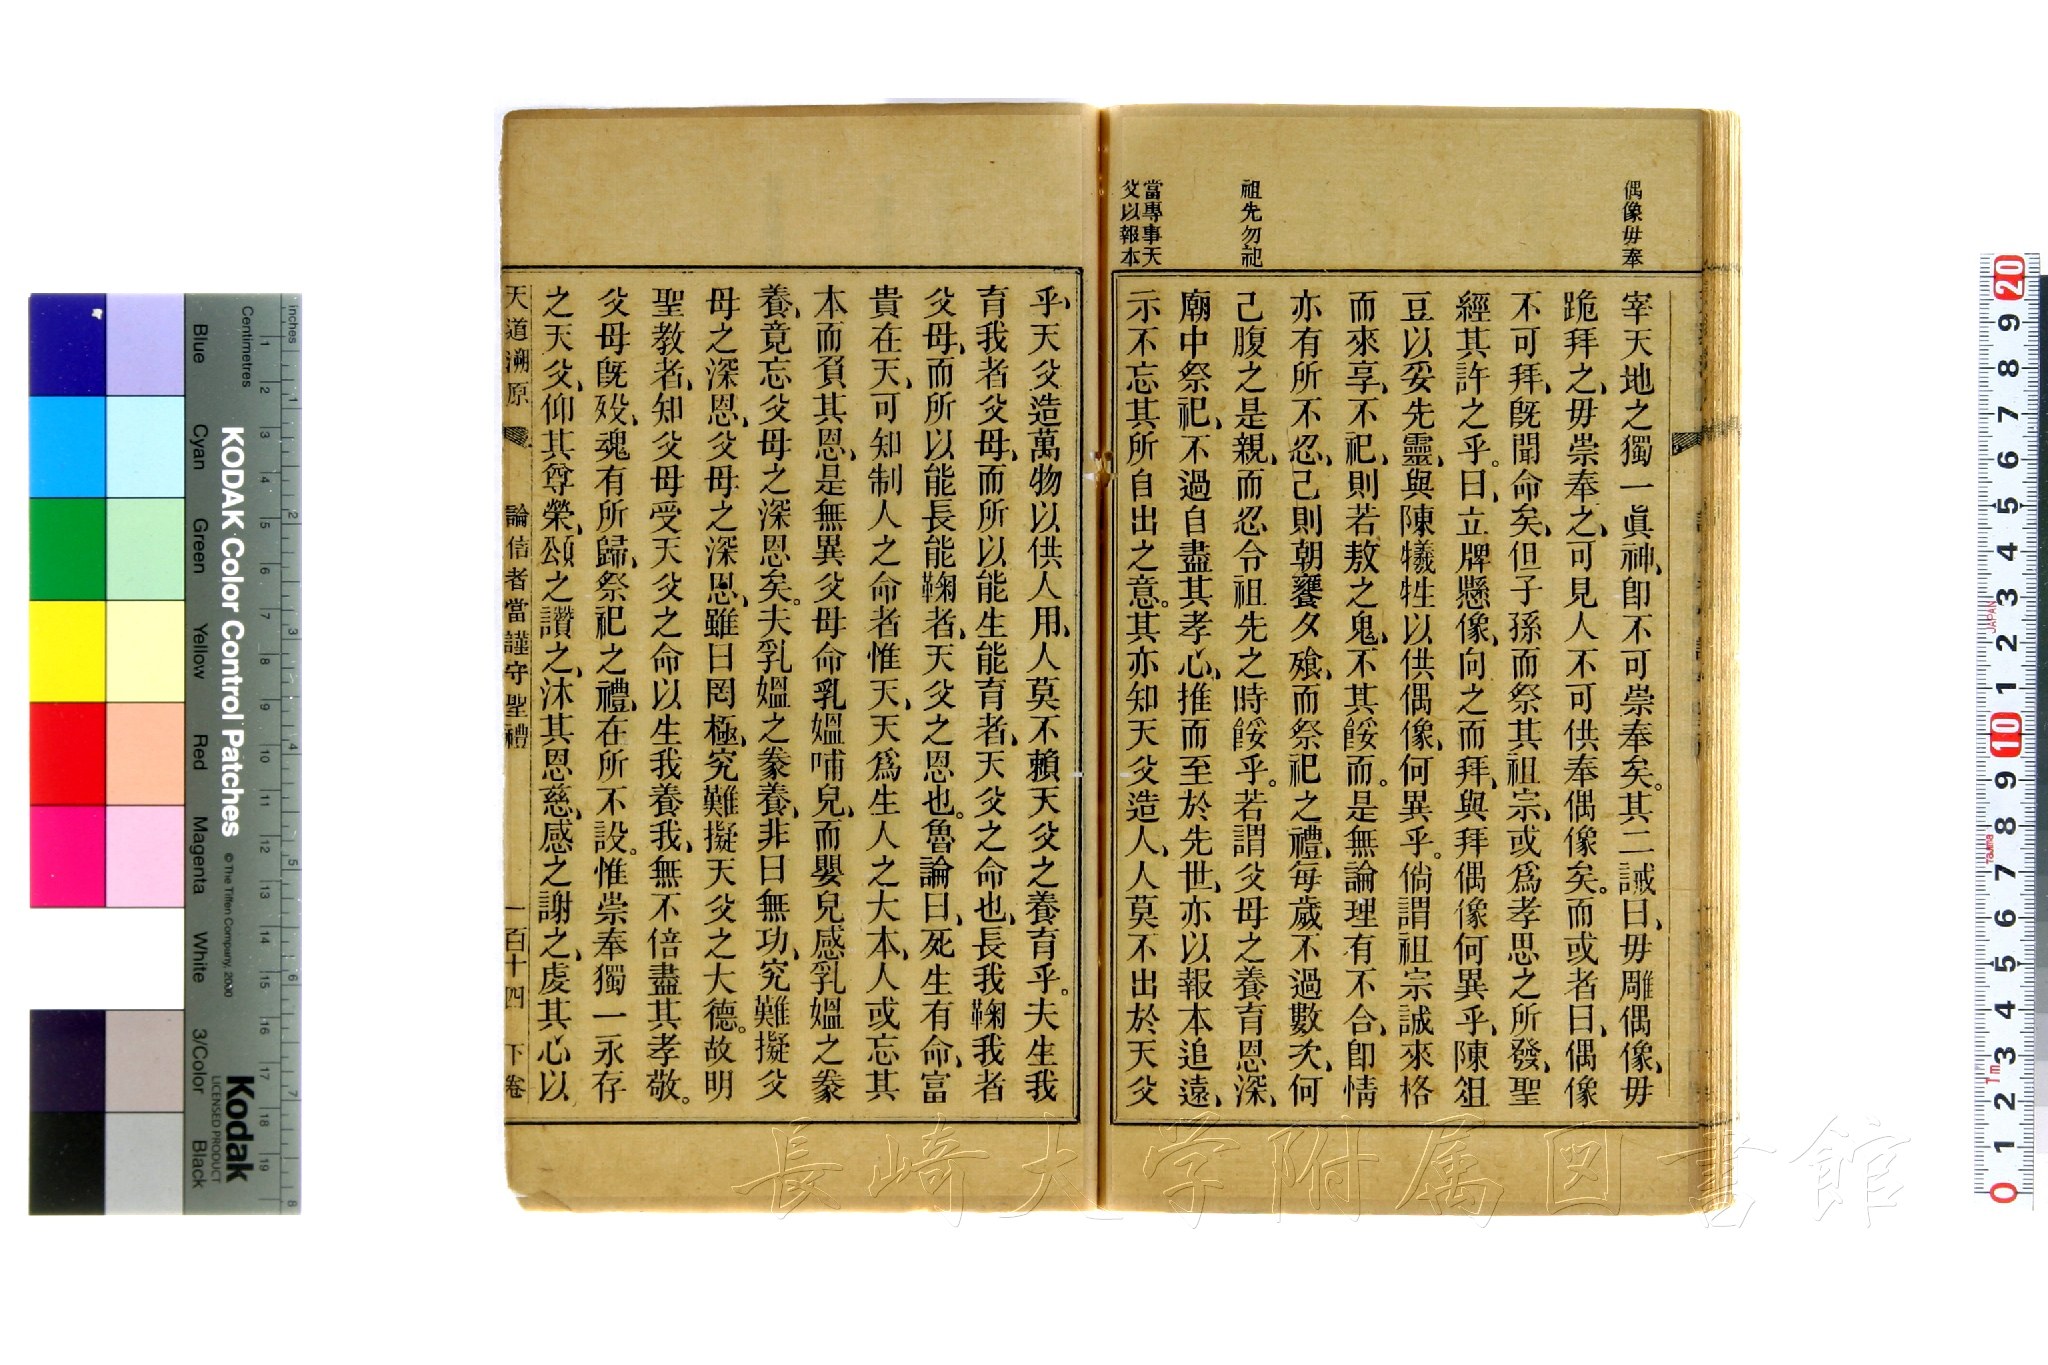 偶像毋奉
祖先勿祀
當專事天
父以報本
宰天地之獨一眞神、卽不可崇奉矣。其二誡曰、毋雕偶像、毋
跪拜之、毋崇奉之、可見人不可供奉偶像矣。而或者曰、偶像
不可拜、旣聞命矣、但子孫而祭其祖宗、或爲孝思之所發、聖
經其許之乎。曰、立牌懸像、向之而拜、與拜偶像何異乎、陳俎
豆以妥先靈、與陳犧牲以供偶像、何異乎。倘謂祖宗誠來格
而來享、不祀、則若敖之鬼、不其餒而。是無論理有不合、卽情
亦有所不忍、己則朝饔夕飧、而祭祀之禮、每歲不過數次、何
己腹之是親、而忍令祖先之時餒乎。若謂父母之養育恩深、
廟中祭祀、不過自盡其孝心、推而至於先世、亦以報本追遠、
示不忘其所自出之意。其亦知天父造人、人莫不出於天父
乎、天父造萬物以供人用、人莫不賴天父之養育乎。夫生我
育我者父母、而所以能生能育者、天父之命也、長我鞠我者
父母、而所以能長能鞠者、天父之恩也。魯論曰、死生有命、富
貴在天、可知制人之命者惟天、天爲生人之大本、人或忘其
本而負其恩、是無異父母命乳媼哺兒、而嬰兒感乳媼之豢
養、竟忘父母之深恩矣。夫乳媼之豢養、非曰無功、究難擬父
母之深恩、父母之深恩、雖曰罔極、究難擬天父之大德。故明
聖教者、知父母受天父之命以生我養我、無不倍盡其孝敬。
父母旣歿、魂有所歸、祭祀之禮、在所不設。惟崇奉獨一永存
之天父、仰其尊榮、頌之讚之、沐其恩慈、感之謝之、虔其心以
天道溯原 論信者當謹守聖禮 一百十四 下卷
長崎大学附属図書館
KODAK Color Control Patches
© The Tiffen Company, 2000
Kodak
LICENSED PRODUCT
Inches
Centimetres
Blue Cyan Green Yellow Red Magenta White 3/Color Black
1 2 3 4 5 6 7 8
1 2 3 4 5 6 7 8 9 10 11 12 13 14 15 16 17 18 19
20 9 8 7 6 5 4 3 2 1 10 9 8 7 6 5 4 3 2 1 0
JAPAN
Tajima
1m